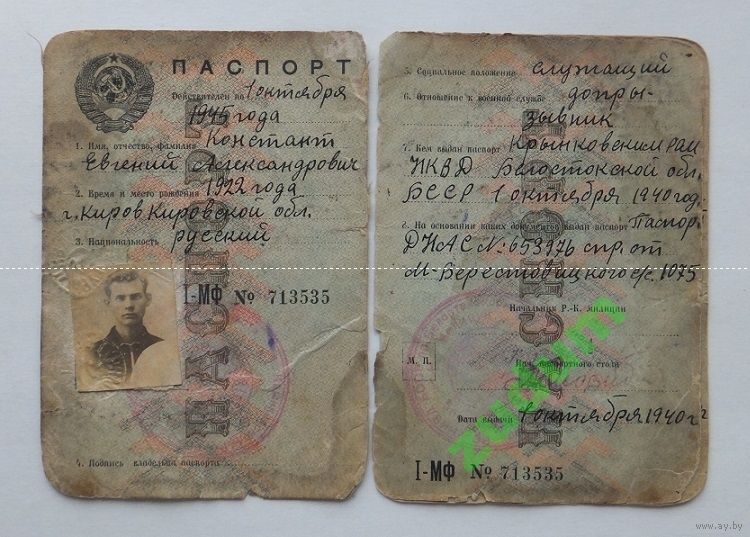 ПАСПОРТ
Действителен по 1 октября
1945 года
1. Имя, отчество, фамилия Констант
Евгений Александрович
2. Время и место рождения 1922 года
г. Киров Кировской обл.
3. Национальность русский
I-МФ № 713535
ПАСПОРТ
4. Подпись владельца паспорта
5. Социальное положение служащий
6. Отношение к военной службе допры-
зывник
7. Кем выдан паспорт Крынковским рай
НКВД Белостокской обл.
БССР 1 октября 1940 год.
8. На основании каких документов выдан паспорт Паспорт
ДНАС № 653976 спр. от
М-Берестовицкого 1075
Начальник Р.-К. милиции
М. П.
Нач. паспортного стола
Дата выдачи 1 октября 1940 г
I-МФ № 713535
ПАСПОРТ
www.ay.by